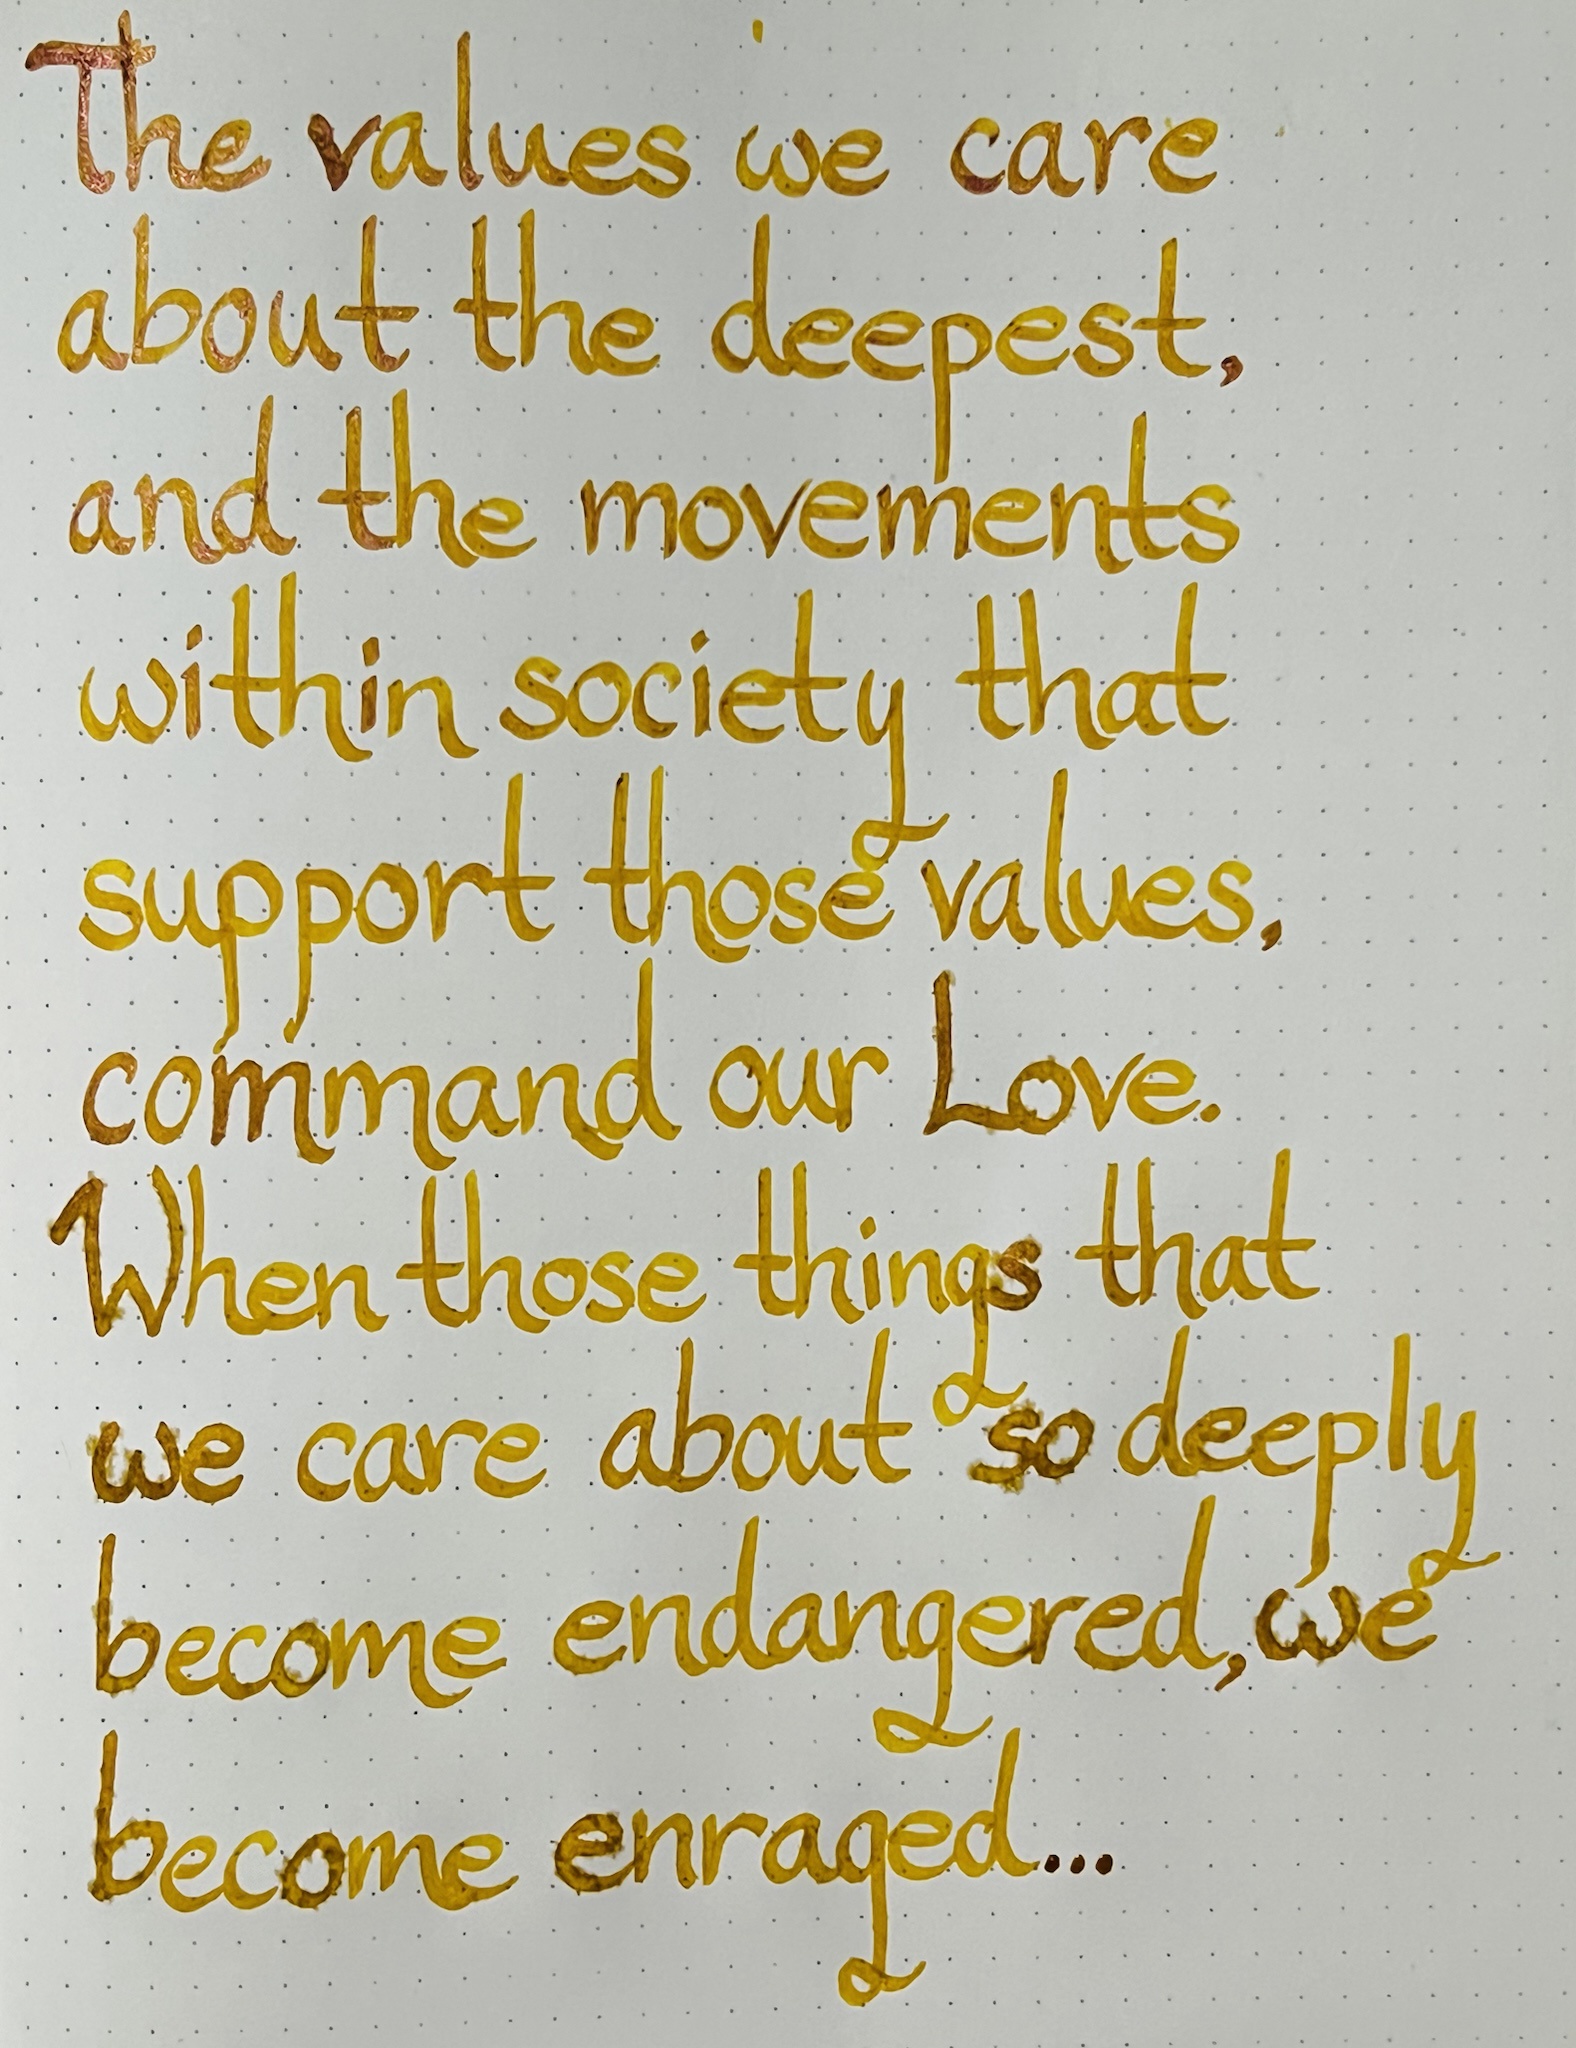 The values we care
about the deepest,
and the movements
within society that
support those values,
command our Love.
When those things that
we care about so deeply
become endangered, we
become enraged...